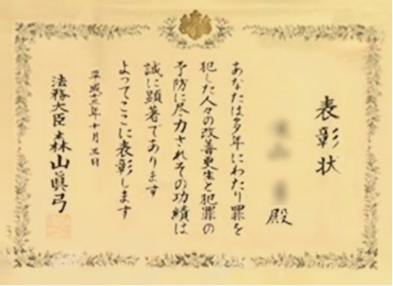 表彰状
殿
あなたは多年にわたり罪を
犯した人々の改善更生と犯罪の
予防に尽力されその功績は
誠に顕著であります
よってここに表彰します
平成十三年十月三日
法務大臣 森山眞弓